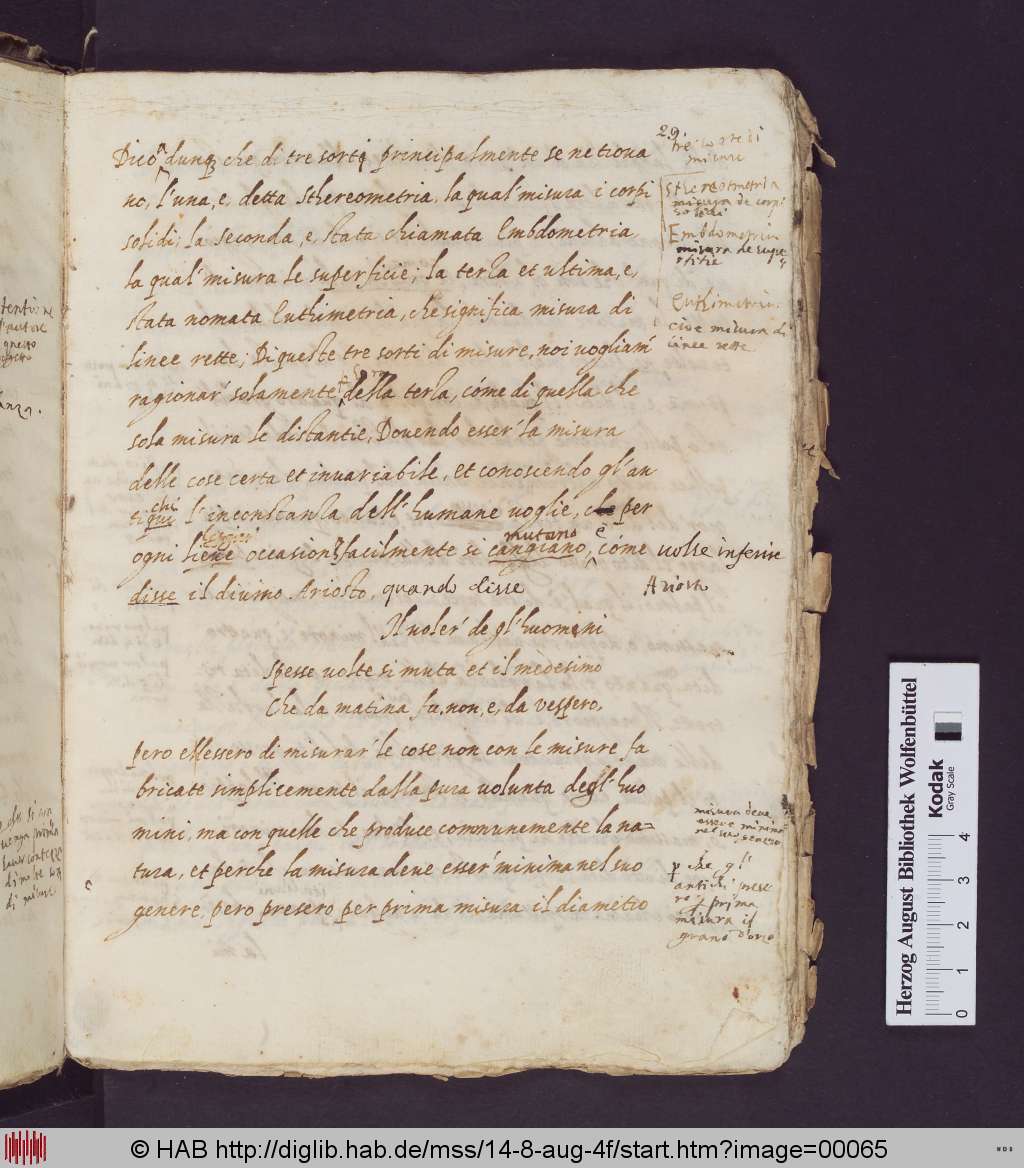 29
Dico dunq3 che di tre sorti principalmente se ne troua
a
no, l'una, e, detta Sthereometria, la qual' misura i corpi
solidi; la seconda, e, stata chiamata Embdometria
la qual' misura le superficie; la terza et ultima, e,
stata nomata Euthimetria, che significa misura di
linee rette; Di queste tre sorti di misure, noi vogliam'
ragionar' solamente della terza, cóme di quella che
sola misura le distantie, Douendo esser' la misura
delle cose certa et inuariabile, et conoscendo gl'an
chi
tiqui l'inconstanza dell' humane uoglie, che per
leggeri mutano e
ogni lieue occasion' facilmente si cangiano, cóme uolse inferire
disse il diuino Ariosto, quando disse
Il uoler' de gl'huomini
Spesse uolte si muta et il medesimo
Che da matina fu, non, e, da vespero.
pero elessero di misurar' le cose non con le misure fa
bricate simplicemente dalla pura uolunta degl' huo
mini, ma con quelle che produce communemente la na=
tura, et perche la misura deue esser' minima nel suo
genere, pero presero per prima misura il diametro
tre sorte di
misure
Sthereometria
misura de corpi
solidi
Embdometria
misura de supe
rfitie
Euthimetria
cioe misura di
linee rette
Ariosto
misura deue
essere minima
nel suo genere
p che gl'
antichi prese
ro p prima
misura il
grano d'orzo
Herzog August Bibliothek Wolfenbüttel
Kodak
Gray Scale
0 1 2 3 4
© HAB http://diglib.hab.de/mss/14-8-aug-4f/start.htm?image=00065